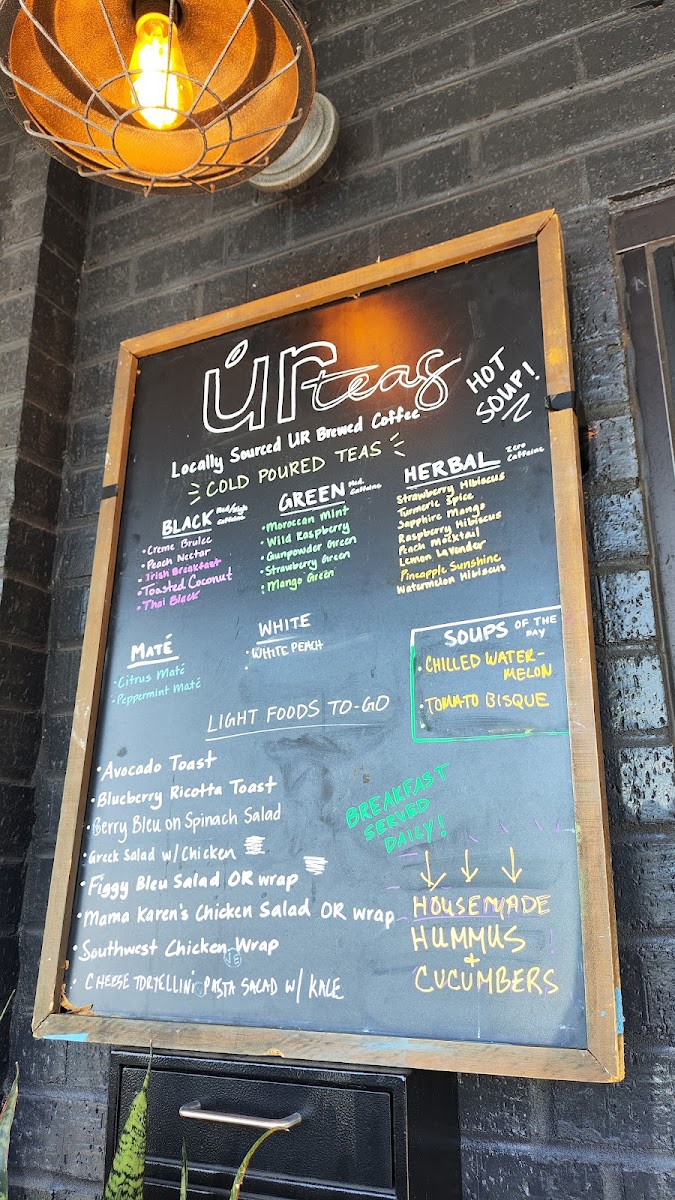 ur teas
HOT
SOUP!
Locally Sourced UR Brewed Coffee
COLD POURED TEAS
BLACK Med/high
caffeine
• Creme Brulee
• Peach Nectar
• Irish Breakfast
• Toasted Coconut
• Thai Black
GREEN Med.
Caffeine
• Moroccan Mint
• Wild Raspberry
• Gunpowder Green
• Strawberry Green
• Mango Green
HERBAL Zero
Caffeine
Strawberry Hibiscus
Turmeric Spice
Sapphire Mango
Raspberry Hibiscus
Peach Mocktail
Lemon Lavender
Pineapple Sunshine
Watermelon Hibiscus
MATÉ
• Citrus Maté
• Peppermint Maté
WHITE
• WHITE PEACH
SOUPS OF THE
DAY
• CHILLED WATER-
MELON
• TOMATO BISQUE
LIGHT FOODS TO-GO
• Avocado Toast
• Blueberry Ricotta Toast
• Berry Bleu on Spinach Salad
• Greek Salad w/ Chicken
• Figgy Bleu Salad OR wrap
• Mama Karen's Chicken Salad OR wrap
• Southwest Chicken Wrap
• CHEESE TORTELLINI PASTA SALAD W/ KALE
BREAKFAST
SERVED
DAILY!
HOUSEMADE
HUMMUS
+
CUCUMBERS